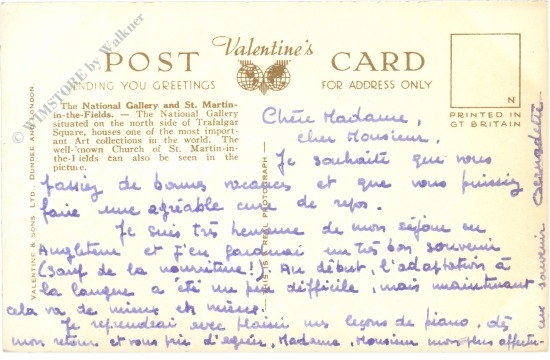 © WIMSTORE by Walkner
POST Valentine's CARD
SENDING YOU GREETINGS FOR ADDRESS ONLY
The National Gallery and St. Martin-
in-the-Fields. — The National Gallery
situated on the north side of Trafalgar
Square, houses one of the most import-
ant Art collections in the world. The
well-known Church of St. Martin-in-
the-Fields can also be seen in the
picture.
N
PRINTED IN
GT BRITAIN
VALENTINE & SONS LTD., DUNDEE AND LONDON.
THIS IS A REAL PHOTOGRAPH
Chère Madame,
cher Monsieur,
Je souhaite que vous
passiez de bonnes vacances et que vous puissiez
faire une agréable cure de repos.
Je suis très heureuse de mon séjour en
Angleterre et j'en garderai un très bon souvenir
(sauf de la nourriture!). Au début, l'adaptation à
la langue a été un peu difficile, mais maintenant
cela va de mieux en mieux.
Je reprendrai avec plaisir mes leçons de piano, dès
mon retour, et vous prie d'agréer, Madame, Monsieur mon plus affectu-
eux souvenir Bernadette